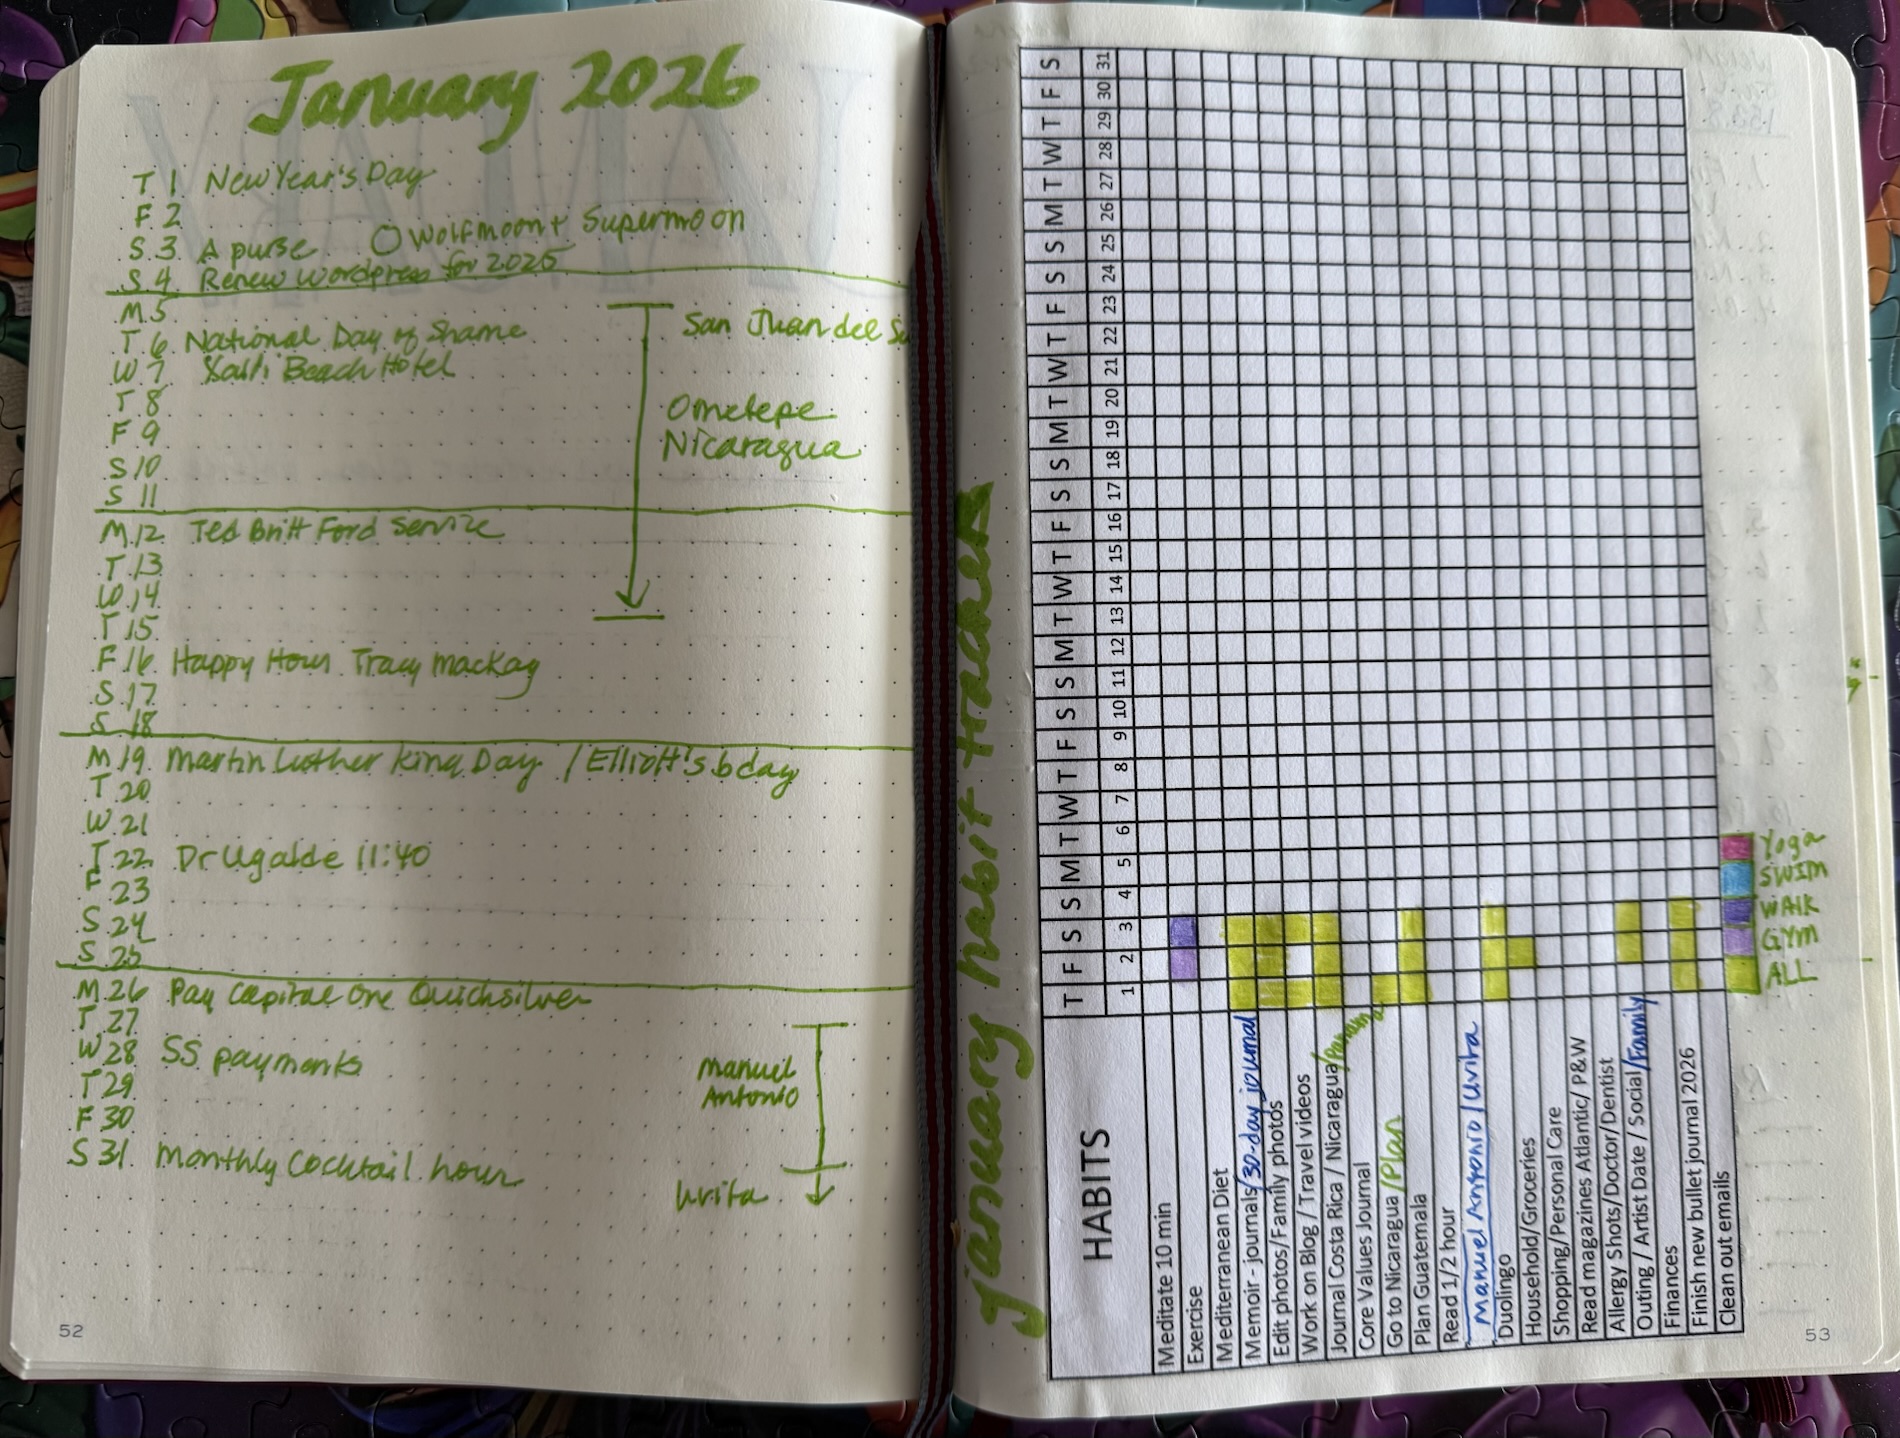 January 2026
T 1 New Year's Day
F 2
S 3 A purse O Wolfmoon + Supermoon
S 4 Renew Wordpress for 2025
M 5
T 6 National Day of Shame
San Juan del Su
W 7 Xalli Beach Hotel
T 8
Ometepe
F 9
Nicaragua
S 10
S 11
M 12 Ted Britt Ford Service
T 13
W 14
T 15
F 16 Happy Hour Tracy Mackay
S 17
S 18
M 19 Martin Luther King Day / Elliott's bday
T 20
W 21
T 22 Dr Ugalde 11:40
F 23
S 24
S 25
M 26 Pay Capital One Quicksilver
T 27
W 28 SS payments
Manuel
T 29
Antonio
F 30
S 31 Monthly Cocktail hour
Uvita
52
january habit tracker
HABITS
T F S S M T W T F S S M T W T F S S M T W T F S S M T W T F S
1 2 3 4 5 6 7 8 9 10 11 12 13 14 15 16 17 18 19 20 21 22 23 24 25 26 27 28 29 30 31
Meditate 10 min
Exercise
Mediterranean Diet
Memoir - journals/30-day journal
Edit photos/Family photos
Work on Blog / Travel videos
Journal Costa Rica / Nicaragua/Panama
Core Values Journal
Go to Nicaragua /Plan
Plan Guatemala
Read 1/2 hour
Manuel Antonio/Uvita
Duolingo
Household/Groceries
Shopping/Personal Care
Read magazines Atlantic/ P&W
Allergy Shots/Doctor/Dentist
Outing / Artist Date / Social/Family
Finances
Finish new bullet journal 2026
Clean out emails
Yoga
SWIM
WALK
GYM
ALL
53